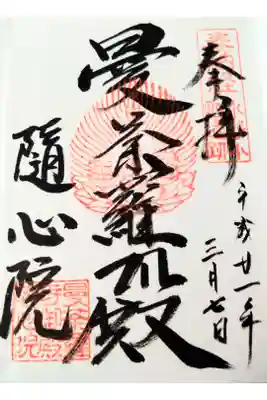 奉拝
平成廿一年
三月七日
曼荼羅殿
隨心院